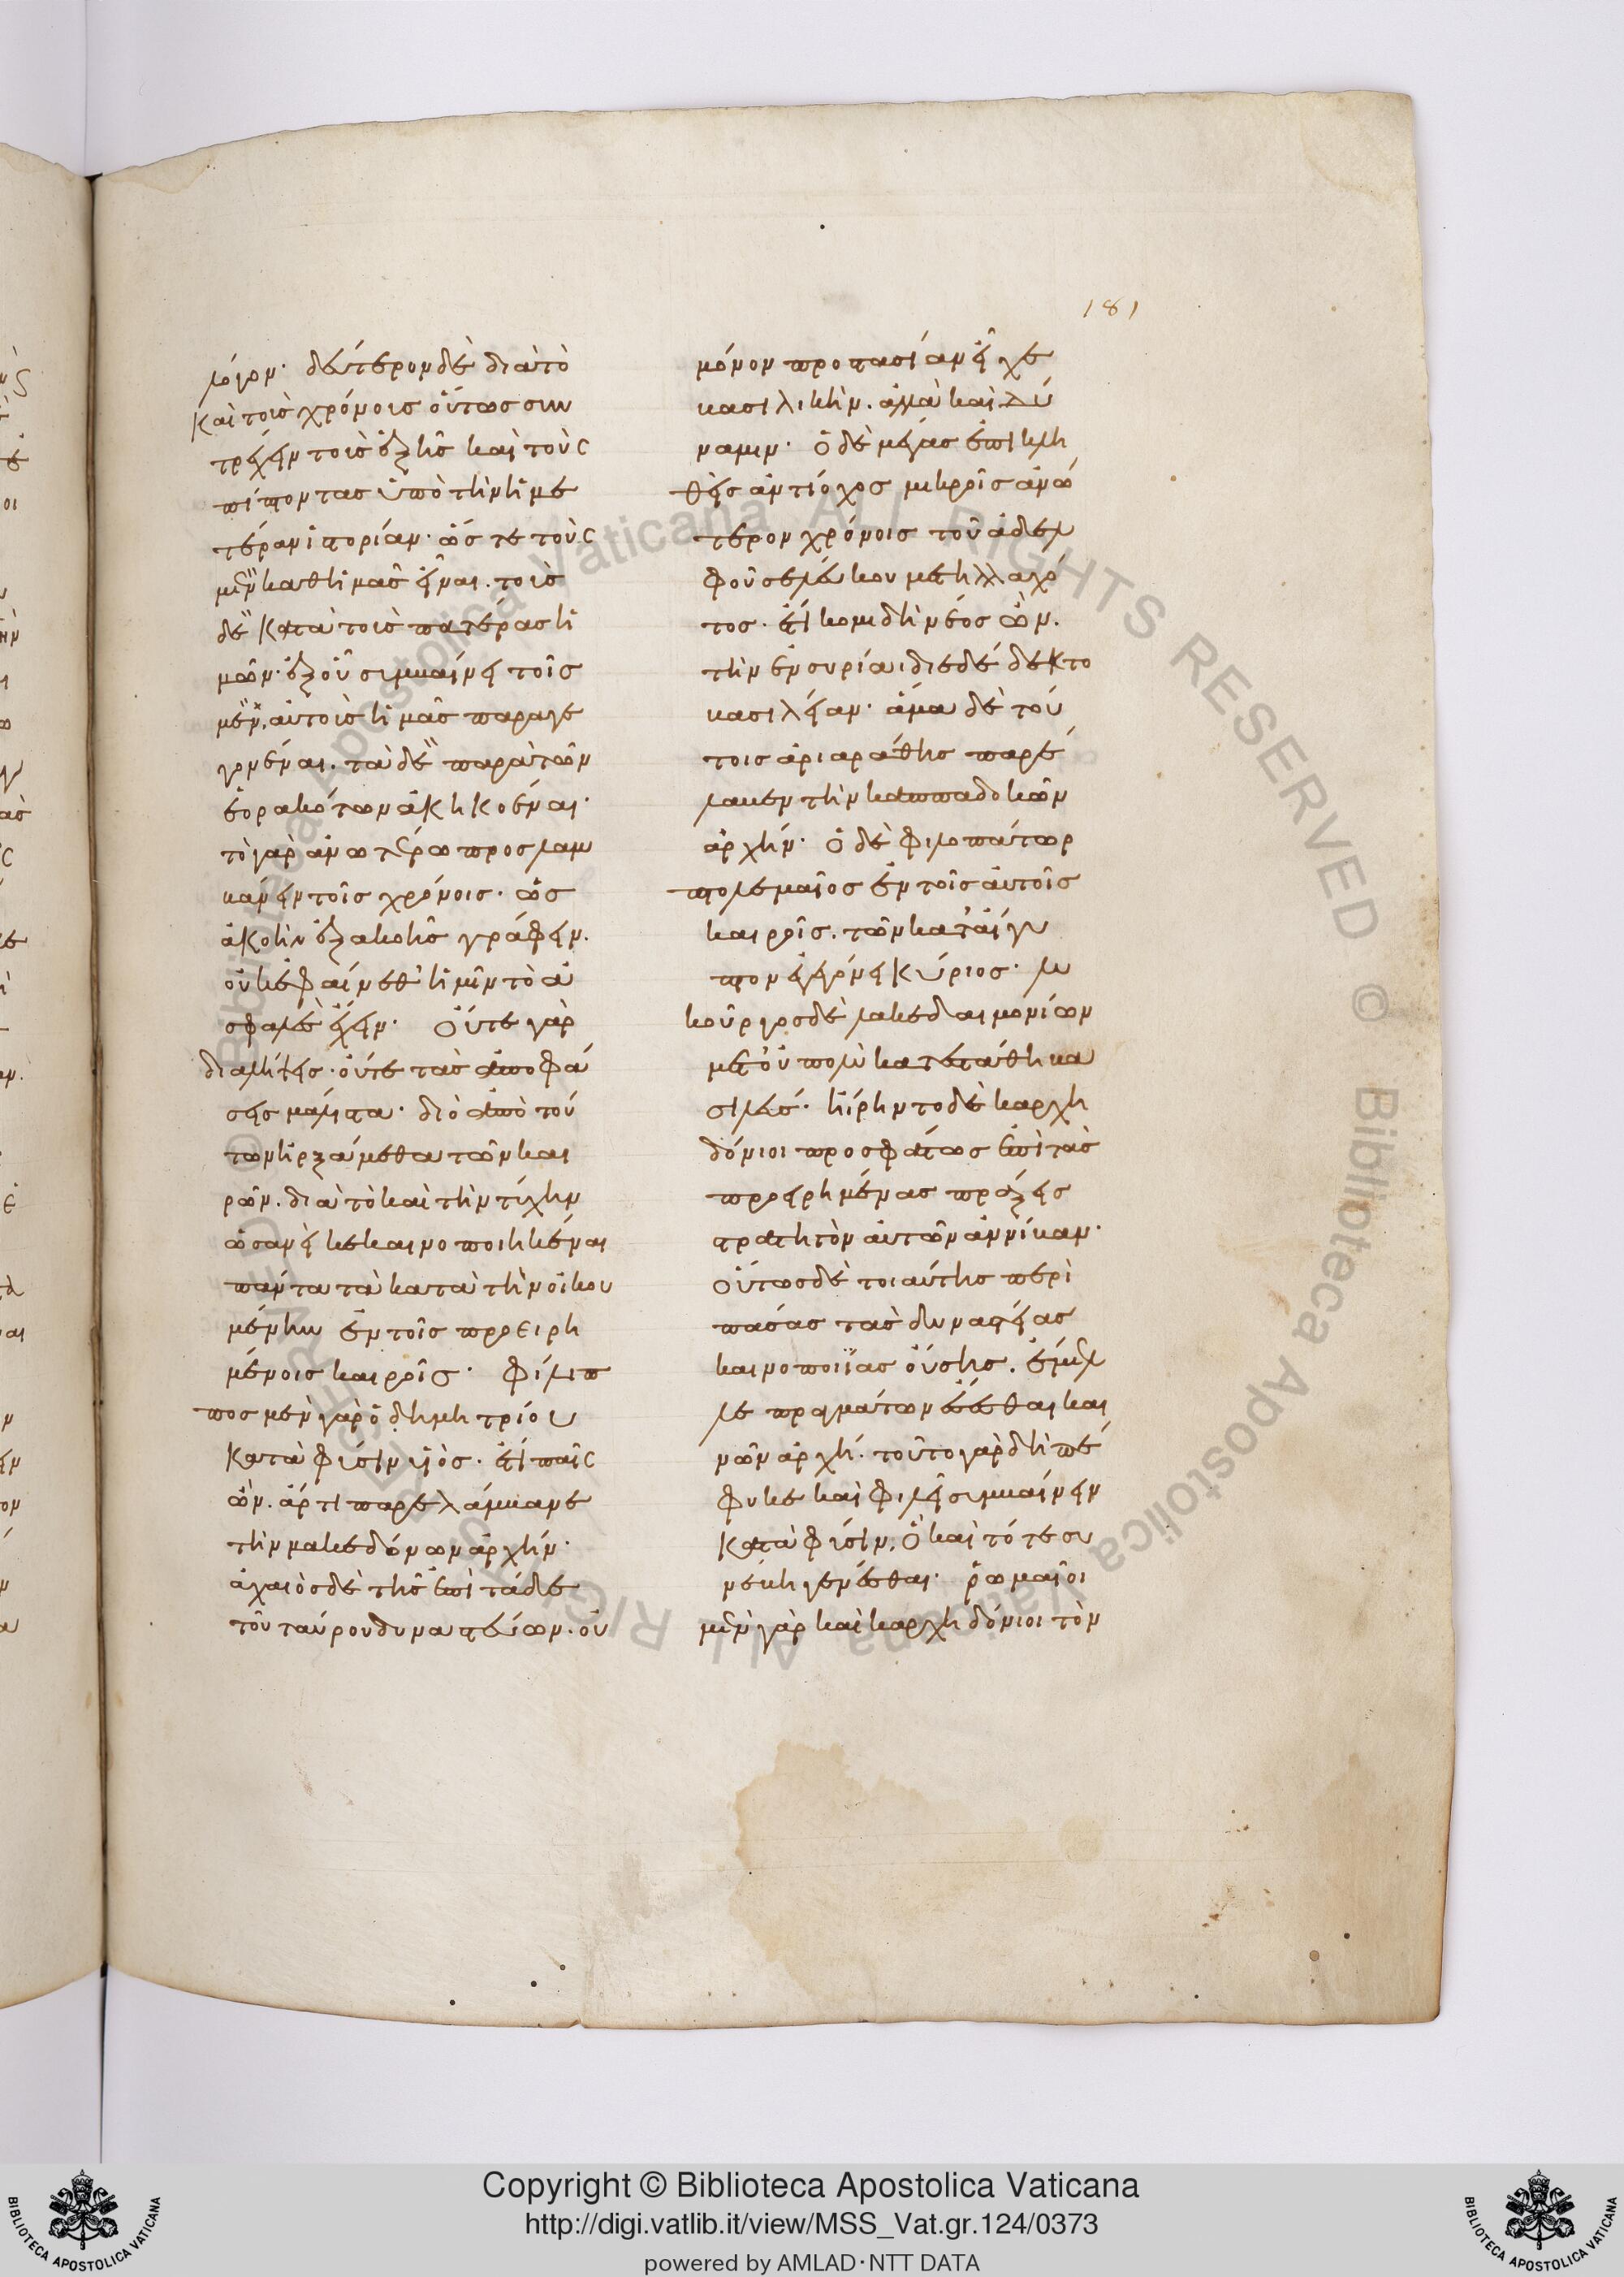 181
λόγον· δεύτερον δὲ διὰ τὸ
καὶ τοὺς χρόνους οὕτως συν
τρέχειν τοὺς ἑξῆς καὶ τοὺς
πίπτοντας ὑπὸ τὴν ἡμε
τέραν ἱστορίαν· ὥστε τοὺς
μὲν καθ ἡμᾶς εἶναι. τοὺς
δὲ κατὰ τοὺς πατέρας ἡ
μῶν· ἐξ οὗ συμβαίνει τοῖς
μὲν, αὐτοὺς ἡμᾶς παραγε
γονέναι. τὰ δὲ παρὰ τῶν
ἑορακότων ἀκηκοέναι·
τὸ γὰρ ἀνωτέρω προσλαμ
βάνειν τοῖς χρόνοις. ὡς
ἀκοὴν ἐξ ἀκοῆς γράφειν.
οὐκ ἐφαίνεθ᾽ ἡμῖν τὸ ἀ
σφαλὲς ἔχειν· Οὔτε γὰρ
διαλήψεις. οὔτε τὰς ἀποφά
σεις μάλιστα· διὸ ἀπὸ τού
των ἠρξάμεθα τῶν και
ρῶν. διὰ τὸ καὶ τὴν τύχην
ὡσανεὶ κεκαινοποιηκέναι
πάντα τὰ κατὰ τὴν οἰκου
μένην ἐν τοῖς προειρη
μένοις καιροῖς· Φίλιπ
πος μὲν γὰρ ὁ δημητρίου
κατὰ φύσιν υἱός. ἔτι παῖς
ὤν. ἄρτι παρελάμβανε
τὴν μακεδόνων ἀρχήν·
ἀχαιὸς δὲ τῆς ἐπὶ τάδε
τοῦ ταύρου δυναστεύων. οὐ
μόνον προστασίαν εἶχε
βασιλικὴν. ἀλλὰ καὶ δύ
ναμιν· Ὁ δὲ μέγας ἐπικλη
θεὶς ἀντίοχος μικροῖς ἀνώ
τερον χρόνοις τοῦ ἀδελ
φοῦ σελεύκου μετηλλαχό
τος. ἔτι κομιδῆ νέος ὢν.
τὴν ἐν συρίαι διεδέδεκτο
βασιλείαν· ἅμα δὲ τού
τοις ἀριαράθης παρέ
λαβεν τὴν καππαδοκῶν
ἀρχήν· Ὁ δὲ φιλοπάτωρ
πτολεμαῖος ἐν τοῖς αὐτοῖς
καιροῖς. τῶν κατ᾽ αἴγυ
πτον ἐγεγόνει κύριος· λυ
κοῦργος δὲ λακεδαιμονίων
μετ᾽ οὐ πολὺ κατεστάθη βα
σιλεύς· ἥιρηντο δὲ καρχη
δόνιοι προσφάτως ἐπὶ τὰς
προειρημένας πράξεις
στρατηγὸν αὑτῶν ἀννίβαν·
Οὕτως δὲ τοιαύτης περὶ
πάσας τὰς δυναστείας
καινοποιΐας οὔσης. ἔμελ
λε πραγμάτων ἔσεσθαι και
νῶν ἀρχή. τοῦτο γὰρ δὴ πέ
φυκε καὶ φιλεῖ συμβαίνειν
κατὰ φύσιν. Ὃ καὶ τότε συ
νέβη γενέσθαι· ῥωμαῖοι
μὲν γὰρ καὶ καρχηδόνιοι τὸν
Copyright © Biblioteca Apostolica Vaticana
http://digi.vatlib.it/view/MSS_Vat.gr.124/0373
powered by AMLAD·NTT DATA
BIBLIOTECA APOSTOLICA VATICANA
BIBLIOTECA APOSTOLICA VATICANA